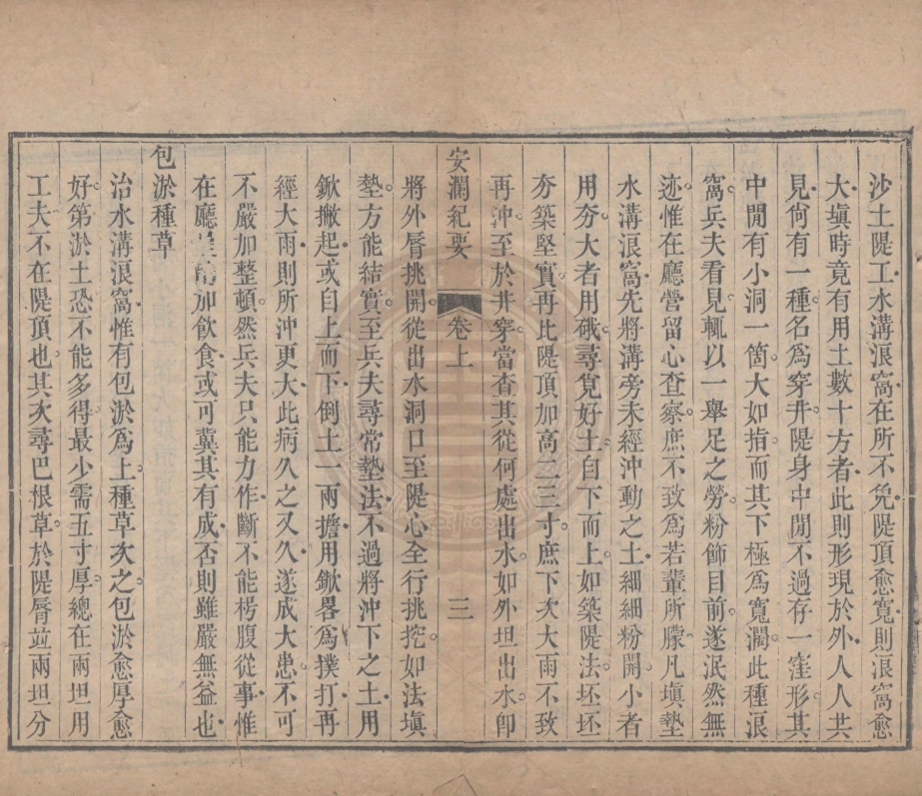 沙土隄工水溝浪窩在所不免隄頂愈寬則浪窩愈
大塡時竟有用土數十方者此則形現於外人人共
見何有一種名爲穿井隄身中閒不過存一窪形其
中閒有小洞一箇大如指而其下極爲寬濶此種浪
窩兵夫看見輒以一舉足之勞粉飾目前遂泯然無
迹惟在廳營留心查察庶不致爲若輩所朦凡塡墊
水溝浪窩先將溝旁未經沖動之土細細粉開小者
用夯大者用硪尋覓好土自下而上如築隄法坯坯
夯築堅實再比隄頂加高二三寸庶下次大雨不致
再沖至於井穿當查其從何處出水如外坦出水卽
安瀾紀要 卷上 三
將外脣挑開從出水洞口至隄心全行挑挖如法塡
墊方能結實至兵夫尋常墊法不過將沖下之土用
鍁撇起或自上而下倒土一兩擔用鍁畧爲撲打再
經大雨則所沖更大此病久之又久遂成大患不可
不嚴加整頓然兵夫只能力作斷不能枵腹從事惟
在廳常加飲食或可冀其有成否則雖嚴無益也
包淤種草
治水溝浪窩惟有包淤爲上種草次之包淤愈厚愈
好第淤土恐不能多得最少需五寸厚總在兩坦用
工夫不在隄頂也其次尋巴根草於隄脣竝兩坦分